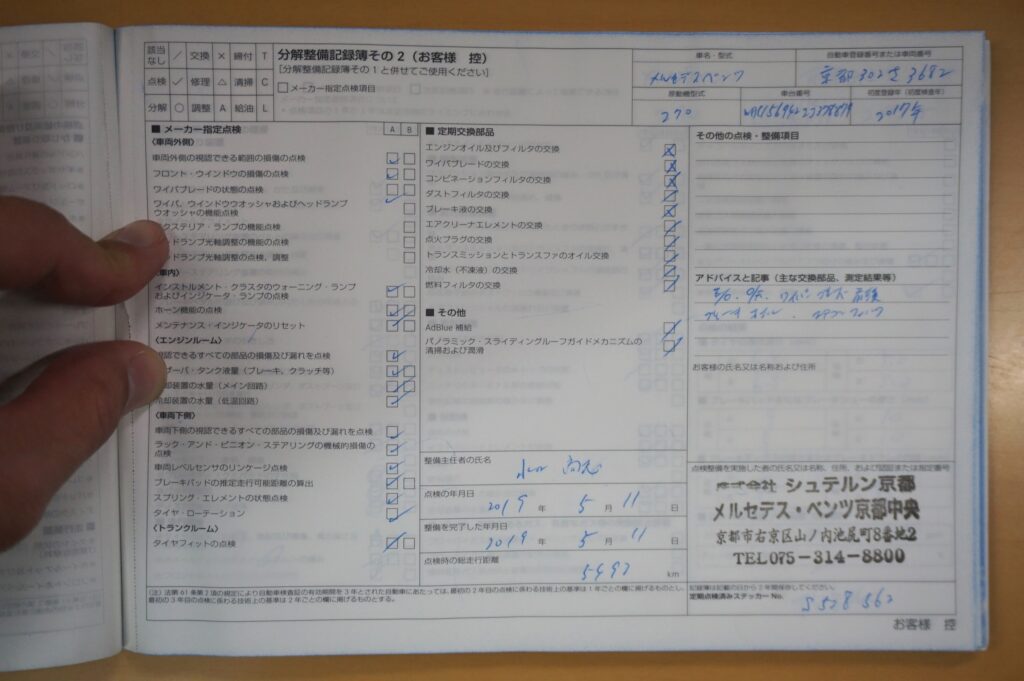 該当なし ／ 交換 × 締付 T
点検 ✓ 修理 △ 清掃 C
分解 ○ 調整 A 給油 L
分解整備記録簿その2（お客様 控）
[分解整備記録簿その1と併せてご使用ください]
□メーカー指定点検項目
車名・型式
メルセデスベンツ
自動車登録番号または車両番号
京都302さ3682
原動機型式
270
車台番号
初度登録年（初度検査年）
2017年
■ メーカー指定点検
A B
〈車両外側〉
車両外側の視認できる範囲の損傷の点検
フロント・ウインドウの損傷の点検
ワイパブレードの状態の点検
ワイパ、ウインドウウオッシャおよびヘッドランプ
ウオッシャの機能点検
クステリア・ランプの機能点検
ドランプ光軸調整の機能の点検
ドランプ光軸調整の点検、調整
車内〉
インストルメント・クラスタのウォーニング・ランプ
およびインジケータ・ランプの点検
ホーン機能の点検
メンテナンス・インジケータのリセット
〈エンジンルーム〉
認できるすべての部品の損傷及び漏れを点検
ザーバ・タンク液量（ブレーキ、クラッチ等）
却装置の水量（メイン回路）
冷却装置の水量（低温回路）
〈車両下側〉
車両下側の視認できるすべての部品の損傷及び漏れを点検
ラック・アンド・ピニオン・ステアリングの機械的損傷の
点検
車両レベルセンサのリンケージ点検
ブレーキパッドの推定走行可能距離の算出
スプリング・エレメントの状態点検
タイヤ・ローテーション
〈トランクルーム〉
タイヤフィットの点検
■ 定期交換部品
エンジンオイル及びフィルタの交換
ワイパブレードの交換
コンビネーションフィルタの交換
ダストフィルタの交換
ブレーキ液の交換
エアクリーナエレメントの交換
点火プラグの交換
トランスミッションとトランスファのオイル交換
冷却水（不凍液）の交換
燃料フィルタの交換
■ その他
AdBlue 補給
パノラミック・スライディングルーフガイドメカニズムの
清掃および潤滑
整備主任者の氏名
点検の年月日
2019 年 5 月 11 日
整備を完了した年月日
2019 年 5 月 11 日
点検時の総走行距離
5492 km
その他の点検・整備項目
アドバイスと記事（主な交換部品、測定結果等）
ブレーキオイル、エアコンフィルタ
お客様の氏名又は名称および住所
点検整備を実施した者の氏名又は名称、住所、および認証または指定番号
株式会社 シュテルン京都
メルセデス・ベンツ京都中央
京都市右京区山ノ内池尻町8番地2
TEL075-314-8800
記録簿は記載の日から2年間保存してください。
定期点検済みステッカー No.
S528562
（注）法第61条第2項の規定により自動車検査証の有効期間を3年とされた自動車にあたっては、最初の2年目の点検に係わる技術上の基準は1年ごとの欄に掲げるものとし、
最初の3年目の点検に係わる技術上の基準は2年ごとの欄に掲げるものとする。
お客様 控